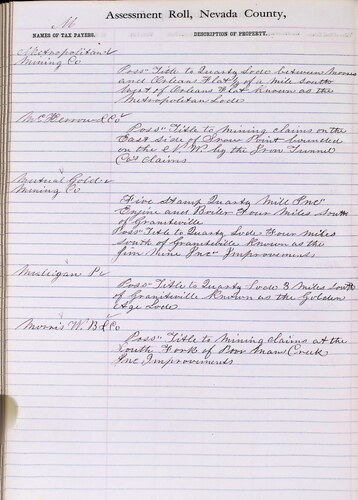 Assessment Roll, Nevada County,
M
NAMES OF TAX PAYERS.
DESCRIPTION OF PROPERTY.
Metropolitan
Mining Co
Poss" Title to Quartz Lode between Moores
and Orleans Flat ½ of a mile south
West of Orleans Flat Known as the
Metropolitan Lode
& Co
Poss" Title to Mining claims on the
East side of Snow Point bounded
on the N. W. by the Iron Tunnel
Co's Claims
Mutual Gold
Mining Co
Five Stamp Quartz Mill Inc"
Engine and Boiler Four Miles South
of Graniteville
Poss" Title to Quartz Lode Four Miles
south of Graniteville Known as the
Mine Inc" Improvements
Mulligan P.
Poss" Title to Quartz Lode 3 Miles south
of Graniteville Known as the Golden
Age Lode
Morris W. B & Co
Poss" Title to Mining claims at the
South Fork of Poor Man Creek
Inc Improvements